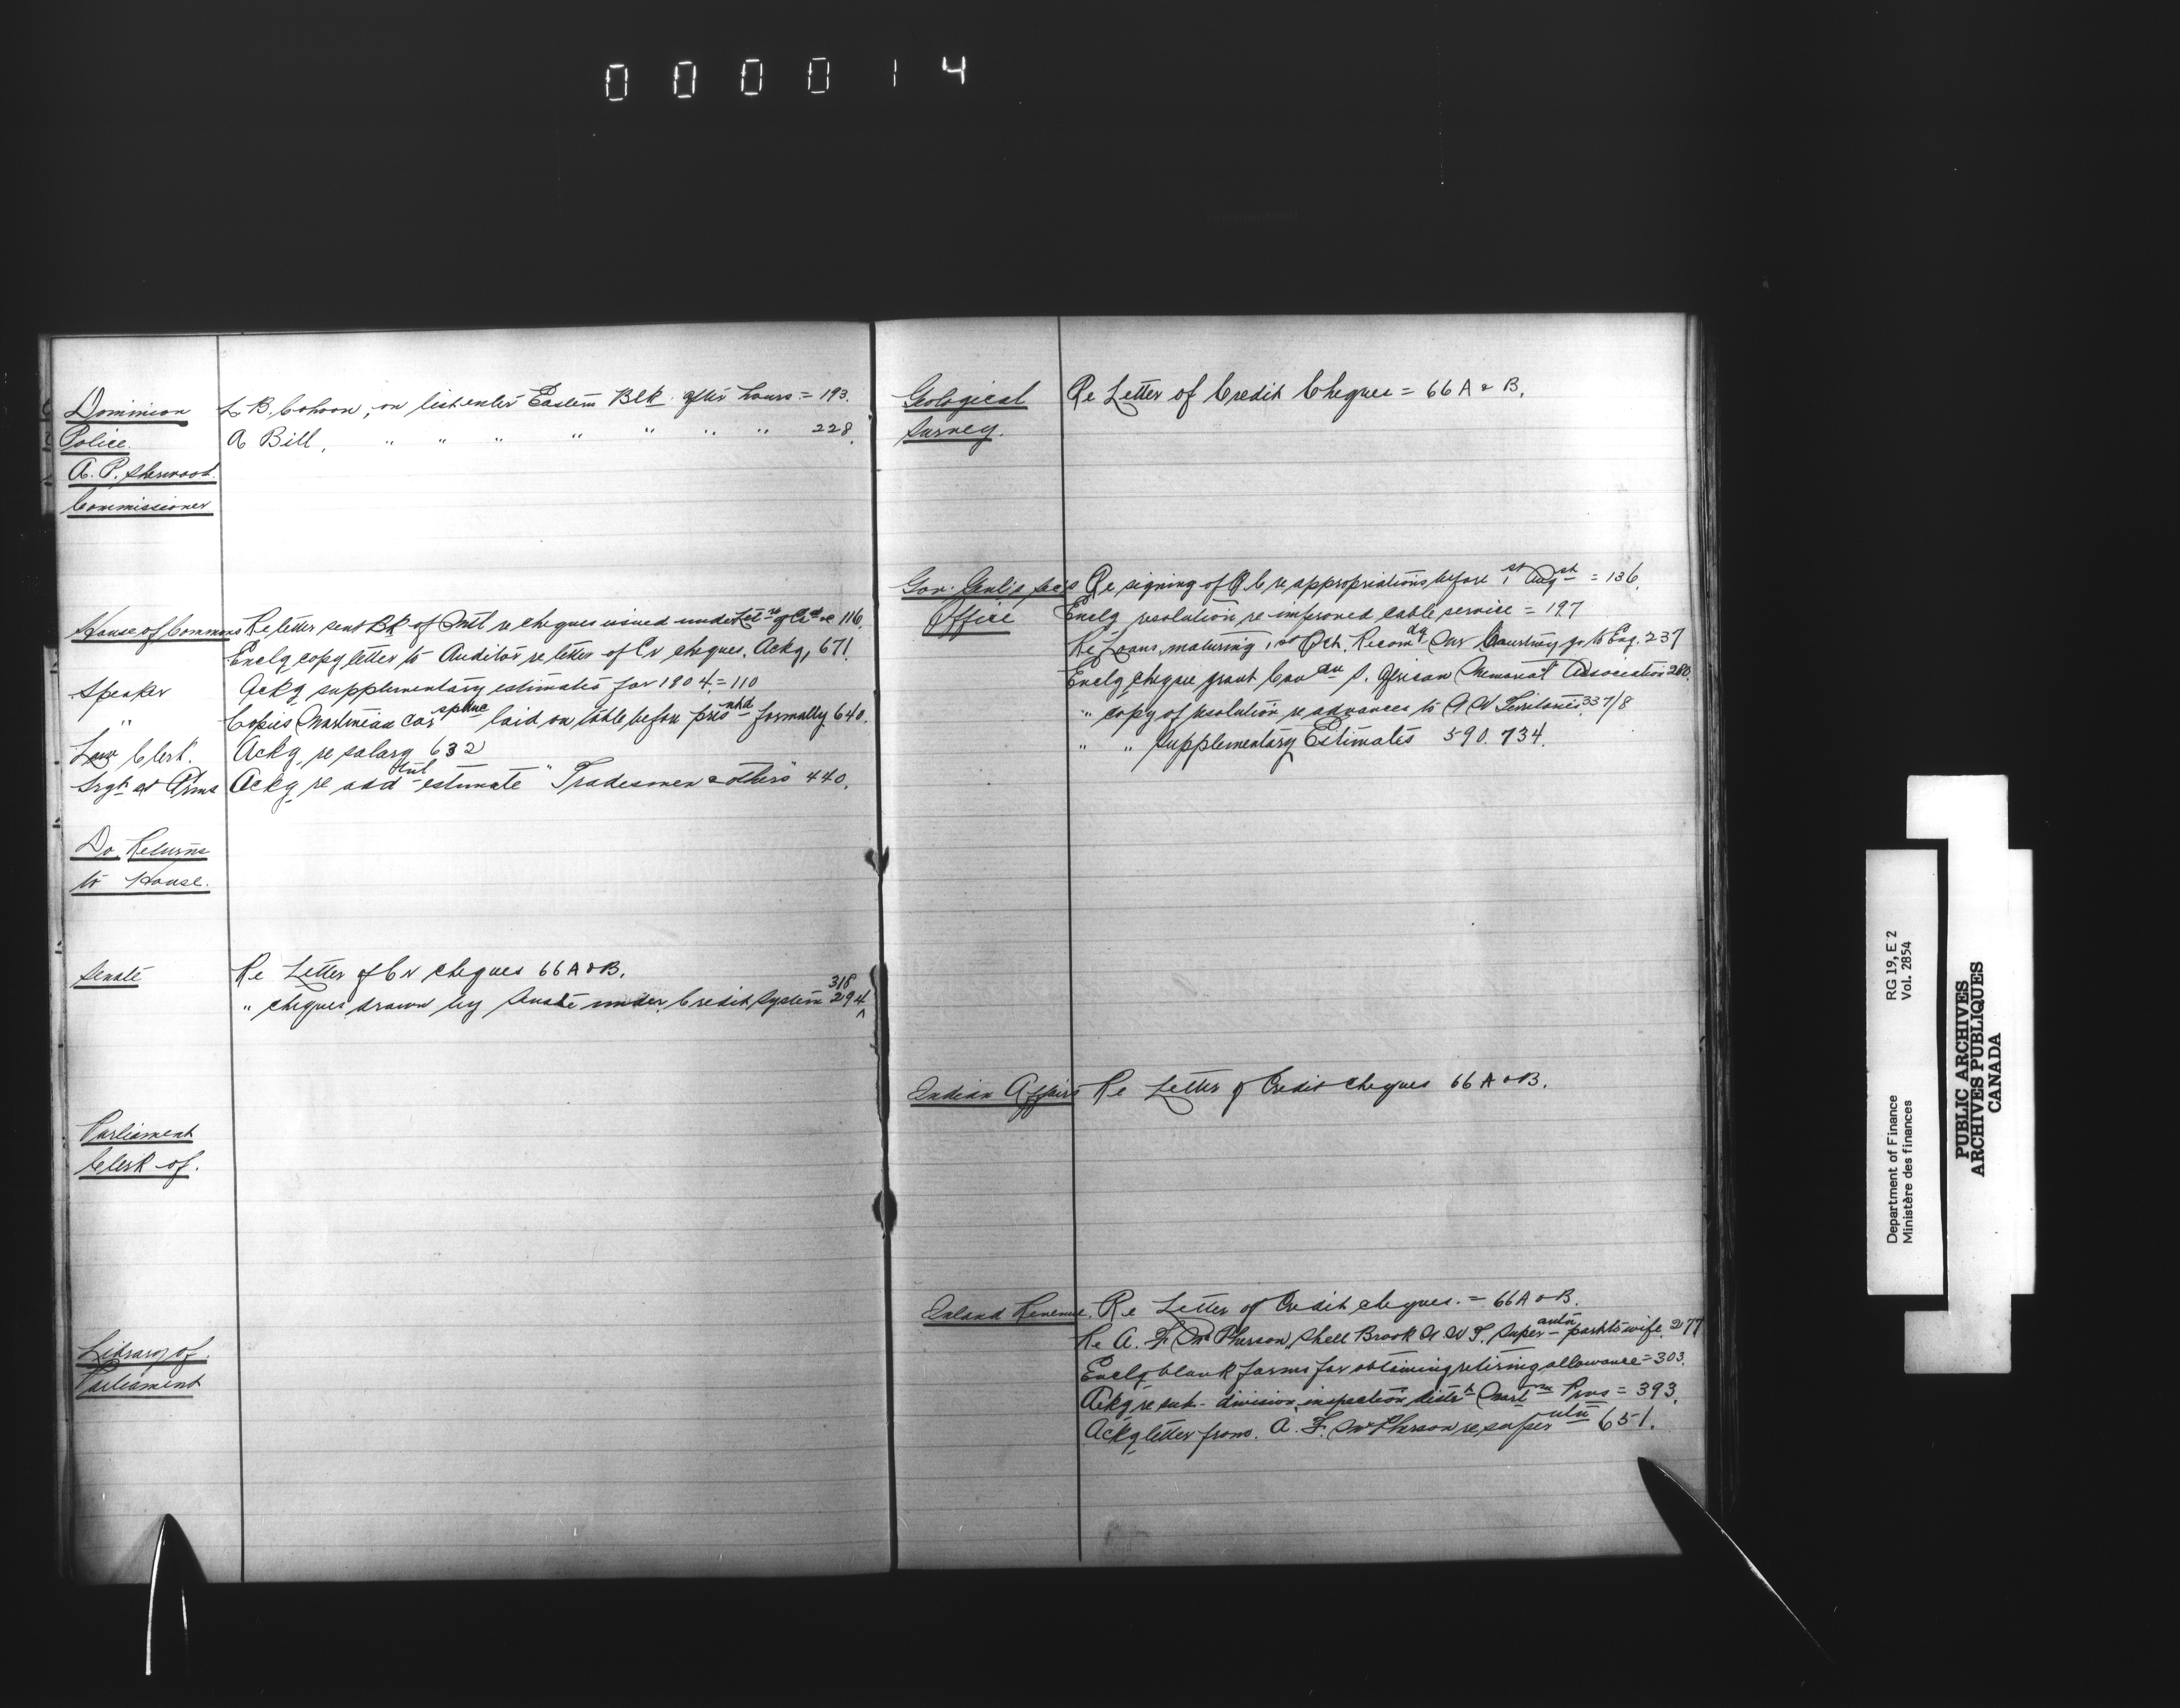 000014
Dominion L. B. Cohoon, on list enter Eastern Blk. after hours = 193.
Police. A Bill, " " " " " " " 228.
A. P. Sherwood.
Commissioner
House of Commons Re letter sent Bk of Mtl re cheques issued under Let re of Cr 116.
Enclg copy letter to Auditor re letter of Cr cheques. Ackg, 671.
Speaker Ackg supplementary estimates for 1904. = 110
" Copies Martinian Corspdnce laid on table before presntd formally 640.
Law Clerk. Ackg re salary 632
Srgt at Arms Ackg re addtnl estimate "Tradesmen & others" 440.
Do. Returns
to House.
Senate Re Letter of Cr cheques 66 A & B.
318
" cheques drawn by Senate under Credit System 294
Parliament
Clerk of.
Library of.
Parliament
Geological Re Letter of Credit Cheques = 66 A & B.
Survey.
Gov. Genl's Sec's Re signing of O C re appropriations before 1st Augst = 136.
Office Enclg resolution re improved cable service = 197
Re Loans maturing 1st Oct. Recomdg Mr Courtney go to Eng. 237
Enclg cheque grant Canan S. African Memorial Association 280.
" copy of resolution re advances to N W Territories 337/8
" " Supplementary Estimates 590. 734.
Indian Affairs Re Letter of Credit Cheques 66 A & B.
Inland Revenue. Re Letter of Credit cheques. = 66 A & B.
Re A. F. McPherson, Shell Brook N W T. Superantn passbk to wife. 277
Enclg blank forms for obtaining retiring allowance = 303.
Ackg re sub-division inspection distrt Mart me Prvs = 393.
Ackg letter from. A. F. McPherson re superntn 651.
Department of Finance RG 19, E 2
Ministère des finances Vol. 2854
PUBLIC ARCHIVES
ARCHIVES PUBLIQUES
CANADA